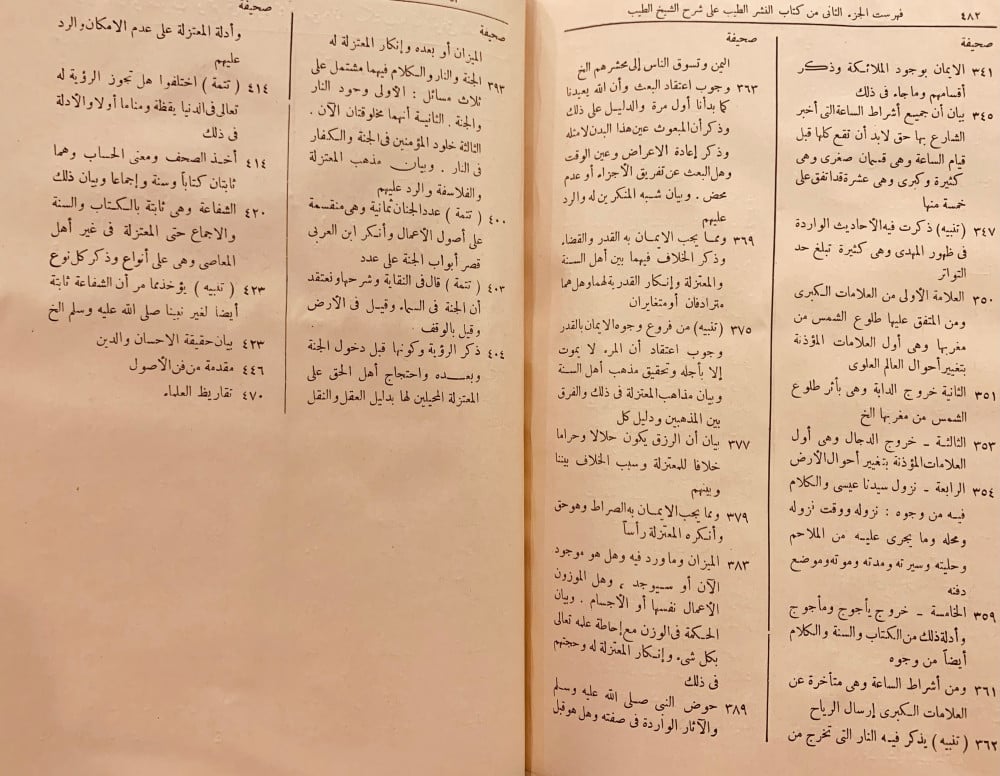 ٤٨٢ فهرست الجزء الثانى من كتاب النشر الطيب على شرح الشيخ الطيب
صحيفة
٣٤١ الايمان بوجود الملائكة وذكر
أقسامهم وماجاء فى ذلك
٣٤٥ بيان أن جميع أشراط الساعة التى أخبر
الشارع بها حق لابد أن تقع كلها قبل
قيام الساعة وهى قسمان صغرى وهى
كثيرة وكبرى وهى عشرة قد اتفق على
خمسة منها
٣٤٧ (تنبيه) ذكرت فيه الأحاديث الواردة
فى ظهور المهدى وهى كثيرة تبلغ حد
التواتر
٣٥٠ العلامة الأولى من العلامات الكبرى
ومن المتفق عليها طلوع الشمس من
مغربها وهى أول العلامات المؤذنة
بتغيير أحوال العالم العلوى
٣٥١ الثانية خروج الدابة وهى بأثر طلوع
الشمس من مغربها الخ
٣٥٣ الثالثة ـ خروج الدجال وهى أول
العلامات المؤذنة بتغيير أحوال الأرض
٣٥٤ الرابعة ـ نزول سيدنا عيسى والكلام
فيه من وجوه : نزوله ووقت نزوله
ومحله وما يجرى عليه من الملاحم
وحليته وسيرته ومدته وموته وموضع
دفنه
٣٥٩ الخامسة ـ خروج يأجوج ومأجوج
وأدلة ذلك من الكتاب والسنة والكلام
أيضاً من وجوه
٣٦١ ومن أشراط الساعة وهى متأخرة عن
العلامات الكبرى إرسال الرياح
٣٦٢ ( تنبيه ) يذكر فيه النار التى تخرج من
صحيفة
اليمن وتسوق الناس إلى محشرهم الخ
٣٦٣ وجوب اعتقاد البعث وأن الله يعيدنا
كما بدأنا أول مرة والدليل على ذلك
وذكر أن المبعوث عين هذا البدن لا مثله
وذكر إعادة الاعراض وعين الوقت
وهل البعث عن تفريق الأجزاء أو عدم
محض . وبيان شبه المنكرين له والرد
عليهم
٣٦٩ ومما يجب الايمان به القدر والقضاء
وذكر الخلاف فيهما بين أهل السنة
والمعتزلة وإنكار القدرية لهما وهل هما
مترادفان أو متغايران
٣٧٥ (تنبيه) من فروع وجوه الايمان بالقدر
وجوب اعتقاد أن المرء لا يموت
إلا بأجله وتحقيق مذهب أهل السنة
وبيان مذاهب المعتزلة فى ذلك والفرق
بين المذهبين ودليل كل
٣٧٧ بيان أن الرزق يكون حلالا وحراما
خلافا للمعتزلة وسبب الخلاف بيننا
وبينهم
٣٧٩ ومما يجب الايمان به الصراط وهو حق
وأنكره المعتزلة رأساً
٣٨٣ الميزان وما ورد فيه وهل هو موجود
الآن أو سيوجد ، وهل الموزون
الأعمال نفسها أو الأجسام . وبيان
الحكمة فى الوزن مع إحاطة علمه تعالى
بكل شىء وإنكار المعتزلة له وحجتهم
فى ذلك
٣٨٩ حوض النبى صلى الله عليه وسلم
والآثار الواردة فى صفته وهل هو قبل
صحيفة
الميزان أو بعده وإنكار المعتزلة له
٣٩٣ الجنة والنار والكلام فيهما مشتمل على
ثلاث مسائل : الأولى وجود النار
والجنة . الثانية أنهما مخلوقتان الآن .
الثالثة خلود المؤمنين فى الجنة والكفار
فى النار . وبيان مذهب المعتزلة
والفلاسفة والرد عليهم
٤٠٠ ( تتمة ) عدد الجنان ثمانية وهى منقسمة
على أصول الأعمال وأنكر ابن العربى
قصر أبواب الجنة على عدد
٤٠٣ ( تتمة ) قال فى النقاية وشرحها ونعتقد
أن الجنة فى السماء وقيل فى الأرض
وقيل بالوقف
٤٠٤ ذكر الرؤية وكونها قبل دخول الجنة
وبعده واحتجاج أهل الحق على
المعتزلة المحيلين لها بدليل العقل والنقل
صحيفة
وأدلة المعتزلة على عدم الامكان والرد
عليهم
٤١٤ ( تتمة ) اختلفوا هل تجوز الرؤية له
تعالى فى الدنيا يقظة ومناما أولا والأدلة
فى ذلك
٤١٤ أخذ الصحف ومعنى الحساب وهما
ثابتان كتاباً وسنة وإجماعا وبيان ذلك
٤٢٠ الشفاعة وهى ثابتة بالكتاب والسنة
والاجماع حتى المعتزلة فى غير أهل
المعاصى وهى على أنواع وذكر كل نوع
٤٢٣ ( تنبيه ) يؤخذ مما مر أن الشفاعة ثابتة
أيضا لغير نبينا صلى الله عليه وسلم الخ
٤٢٣ بيان حقيقة الإحسان والدين
٤٤٦ مقدمة من فن الأصول
٤٧٠ تقاريظ العلماء